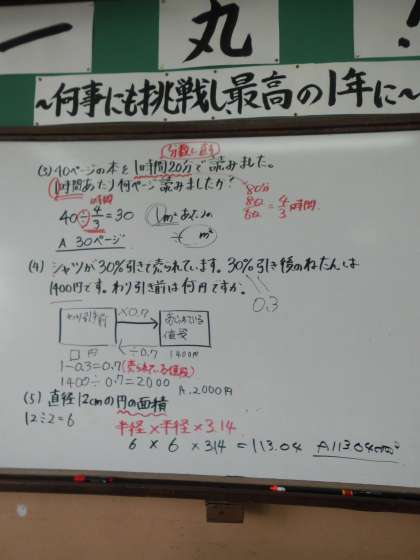 一丸!
～何事にも挑戦し、最高の1年に～
分数に直す
(3) 40ページの本を1時間20分で読みました。
1時間あたり何ページ読みましたか？
80分
40÷4/3=30
時間
80/60=4/3時間
1m²あたりの
m²
A 30ページ
(4) シャツが30%引きで売られています。30%引き後のねだんは
1400円です。わり引き前は何円ですか。
0.3
わり引き前
×0.7
売られている値段
÷0.7
□円
1400円
1-0.3=0.7(売られている値段)
1400÷0.7=2000
A.2000円
(5) 直径12cmの円の面積
12÷2=6
半径×半径×3.14
6×6×3.14=113.04
A113.04cm²